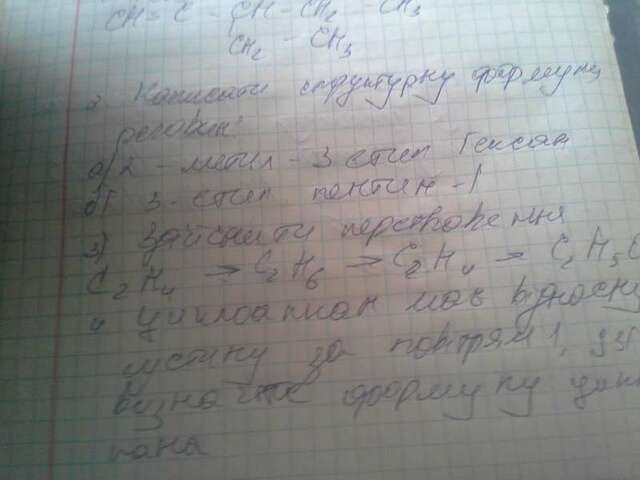 CH≡C - CH - CH2 - CH3
CH2 - CH3
2 Написати структурну формулу
речовин:
а) 2 - метил - 3 етил гексан
б) 3 - етил пентин - 1
3) Здійснити перетворення
C2H4 → C2H6 → C2H4 → C2H5C
4 Циклоалкан має відносну
густину за повітрям 1,
визначте формулу